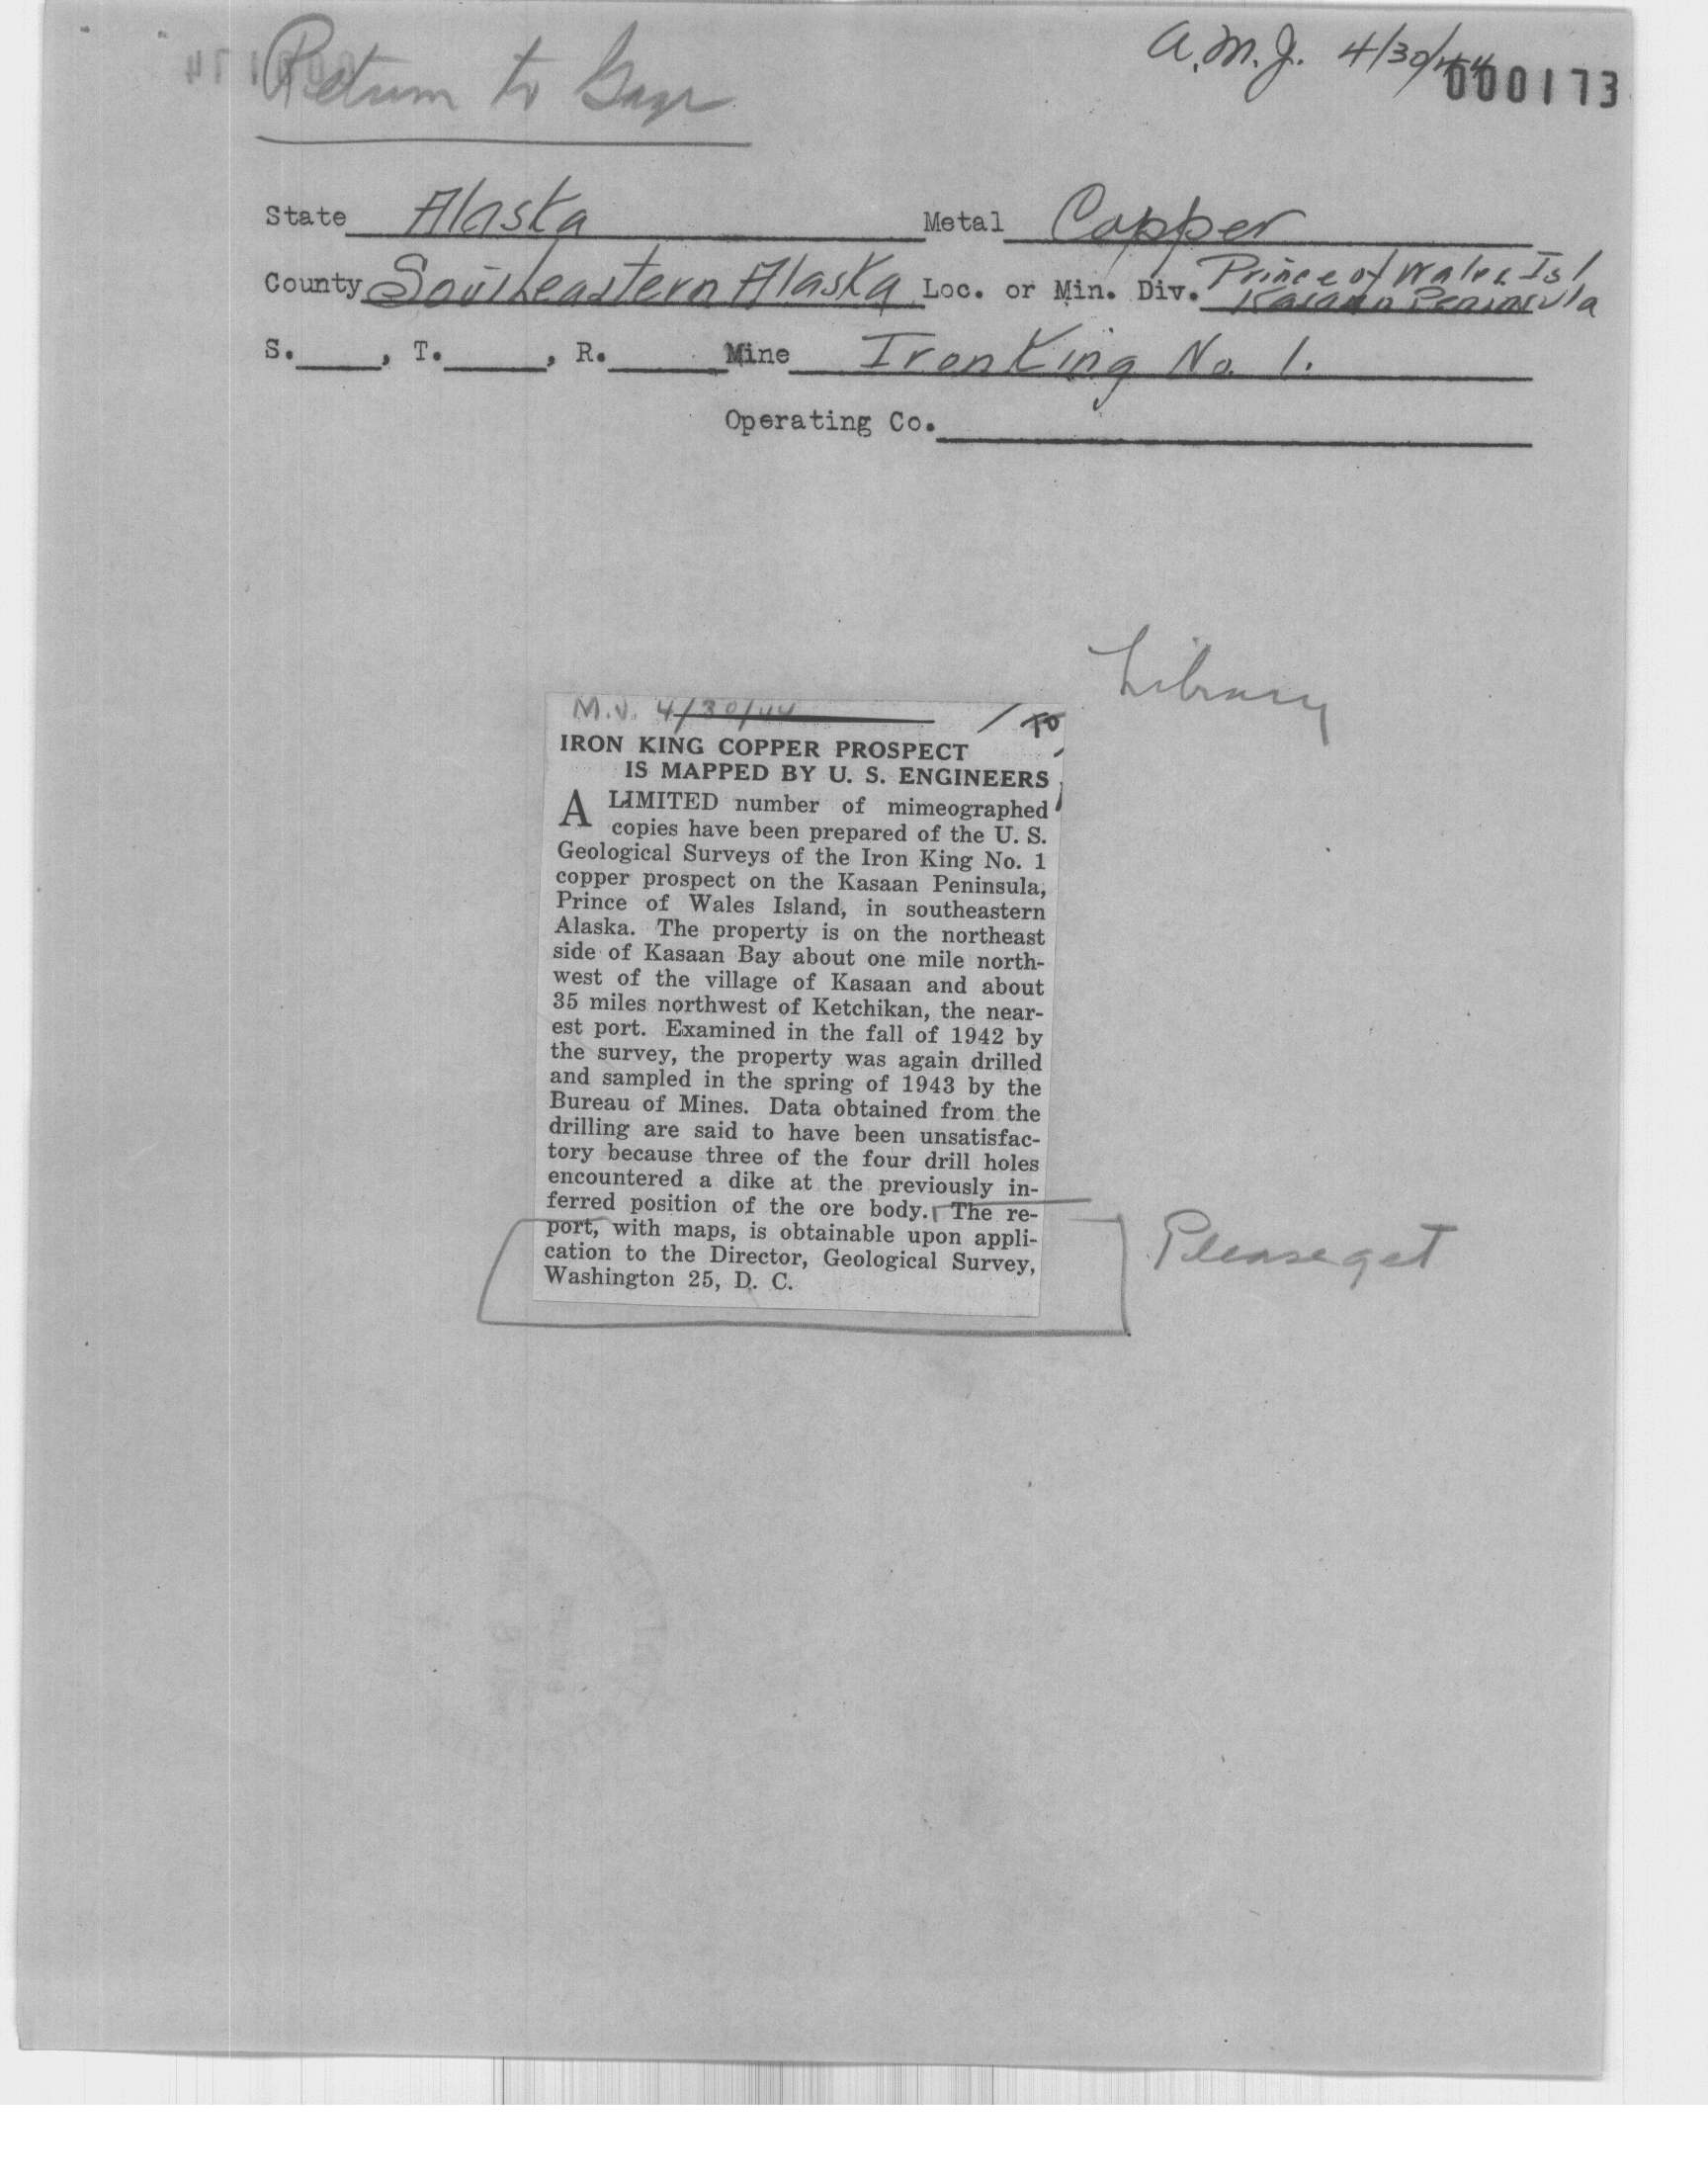 Return to
A.M.J. 4/30/44
000173
State Alaska Metal Copper
County Southeastern Alaska Loc. or Min. Div. Prince of Wales Isl
Kasaan Peninsula
S.____, T.____, R.____ Mine Iron King No. 1.
Operating Co.
Library
M.J. 4/30/44
IRON KING COPPER PROSPECT
IS MAPPED BY U. S. ENGINEERS
A LIMITED number of mimeographed
copies have been prepared of the U. S.
Geological Surveys of the Iron King No. 1
copper prospect on the Kasaan Peninsula,
Prince of Wales Island, in southeastern
Alaska. The property is on the northeast
side of Kasaan Bay about one mile north-
west of the village of Kasaan and about
35 miles northwest of Ketchikan, the near-
est port. Examined in the fall of 1942 by
the survey, the property was again drilled
and sampled in the spring of 1943 by the
Bureau of Mines. Data obtained from the
drilling are said to have been unsatisfac-
tory because three of the four drill holes
encountered a dike at the previously in-
ferred position of the ore body. The re-
port, with maps, is obtainable upon appli-
cation to the Director, Geological Survey,
Washington 25, D. C.
Please get